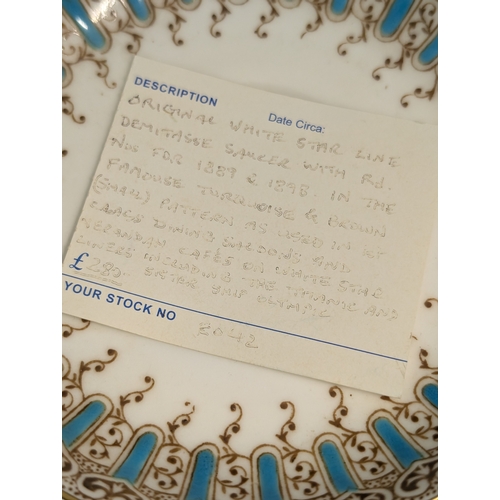 DESCRIPTION
Date Circa:
ORIGINAL WHITE STAR LINE
DEMITASSE SAUCER WITH Rd.
Nos FOR 1889 & 1898. IN THE
FAMOUSE TURQUOISE & BROWN
(SMALL) PATTERN AS USED IN 1ST
CLASS DINING SALOONS AND
VERANDAH CAFES ON WHITE STAR
LINERS INCLUDING THE TITANIC AND
£280 SISTER SHIP OLYMPIC
YOUR STOCK NO